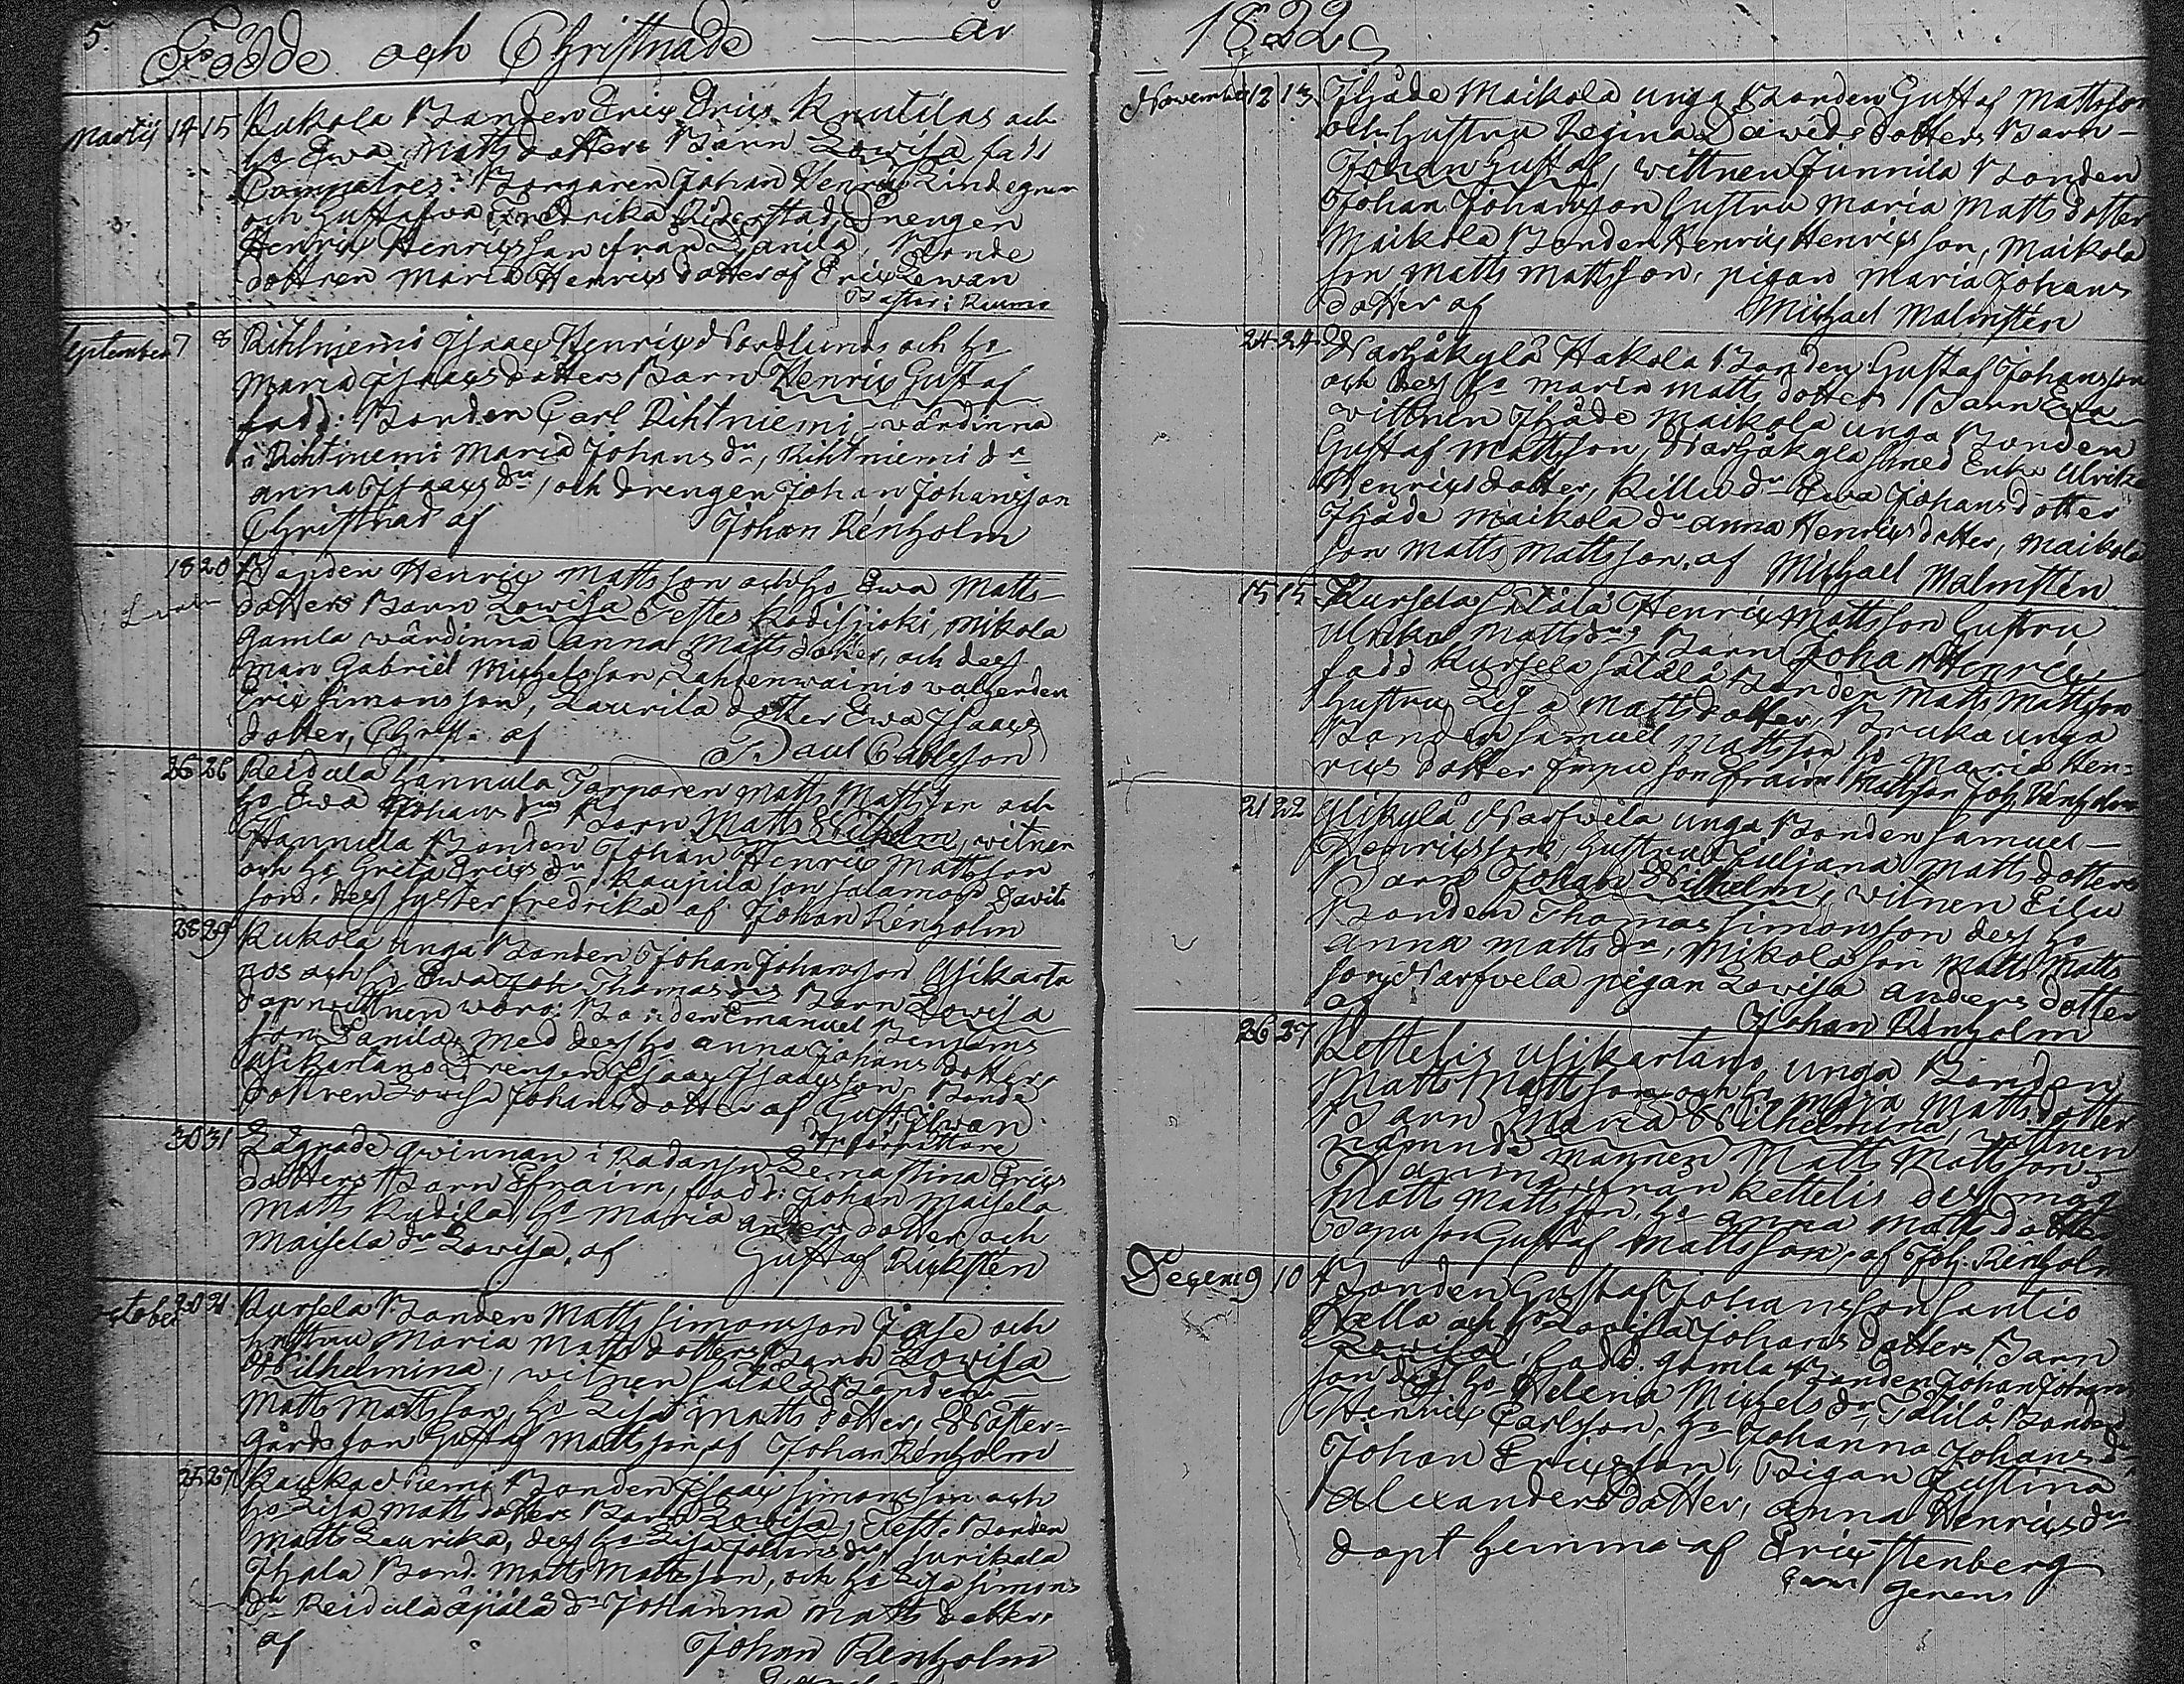 5.
Födde och Christnade år
Martij 14 15 Kukola Bonden Eric Erics Knutilas och
ho Ewa Matts dotters Barn Lowisa fadd
Compatres: Borgaren Johan Henric Lindegren
och Gustafwa Fredrika Drengen
Henric Henricsson från Sanila, Bonde
dottren Maria Henrics dotter af Eric Lewan
Pastor i Raumo
September 7 8 Rihtniemi Isaac Henric Nordlunds och ho
Maria Isaacs dotters Barn Henric Gustaf
fadd: Bonden Carl Rihtniemi wärdinna
i Rihtniemi Maria Johans dr, Rihtniemi dr
Anna Isaacs dr, och drengen Johan Johansson
Christnad af Johan Renholm
18 20 Bonden Henric Mattsson och ho Ewa Matts-
dotters Barn Lowisa Testes Kodisjoki, Mikola
gamla wärdinna Anna Matts dotter, och dess
man Gabriel Michelsson, Lahtenwainio
Eric Simonsson, Laurila dotter Ewa Isaacs
dotter, Christ. af Paul Carlsson
26 26 Reidula Hannula Torparen Matts Mattsson och
ho Ewa Johans drs Barn Matts Wilhelm, witnen
Hannula Bonden Johan Henric Mattsson
och ho Greta Erics dr Kaupila son Salamon Davids
son, dess syster Fredrika af Johan Renholm
28 29 Kukola unga Bonden Johan Johansson Uikarta
nos och ho Ewa Joh: Thomas drs Barn Lowisa
dopwittnen woro: Bonden Emanuel Benjams
son Sanila, med dess ho Anna Johans dotter,
Uikartano Drengen Isaac Isaacsson, Bonde
dottren Lowisa Johans dotter af Gust. Ilwan
30 31 Lägrade qwinnan i Radansu Lena Stina Erics
dotters Barn Efraim, fadd: Johan Maisela
Matt Kydila, ho Maria Anders dotter och
Maisela dr Lowisa, af Gustaf Ricksten
October 20 21 Kursela Bonden Matts Simonsson Jase och
hustru Maria Matts dotters Barn Lowisa
Wilhelmina, witnen Satala Bonden
Matts Mattsson, ho Lisa Matts dotter,
gårds son Gustaf Mattsson, af Johan Renholm
25 27 Bonden Isaac Simonsson och
ho Lisa Matts dotters Barn Lowisa, Test. Bonden
Matts Laurika, dess ho Lisa Johans dr, Surikala
Bond. Matts Mattsson, och ho Lisa Simons
dr Reidula dr Johanna Matts dotter,
af Johan Renholm
1822
November 12 13 Ihåde Maikola unga Bonden Gustaf Mattsson
och hustru Regina Dawids dotters Barn-
Johan Gustaf, wittnen Junnila Bonden
Johan Johansson hustru Maria Matts dotter
Maikola Bonden Henric Henricsson, Maikola
son Matts Mattsson, pigan Maria Johans
dotter af Michael Malmsten
24 24 Hakola Bonden Gustaf Johansson
och dess ho Maria Matts dotters Barn Ewa
wittnen Ihåde Maikola unga Bonden
Gustaf Mattsson, Smed Enka Ulrika
Henrics dotter, Killu dr Ewa Johans dotter
Ihåde Maikola dr Anna Henrics dotter, Maikola
son Matts Mattsson, af Michael Malmsten
15 15 Kursela Satala Henric Mattsson hustru
Ulrika Matts drs Barn Johan Henric
fadd Kursela Satala Bonden Matts Mattsson
hustru Lisa Matts dotter, unga
Bonden Samuel Mattsson ho Maria Hen-
rics dotter son Efraim Mattsson Joh. Renholm
21 22 Ylikylä Narfwela unga Bonden Samuel-
Henricsson, hustru Juliana Matts dotters
Barn Johan Wilhelm, witnen Eilu
Bonden Thomas Simonsson dess ho
Anna Matts dr, Mikola son Matts Matts
son, Narfvela pigan Lovisa Anders dotter
af Johan Renholm
26 27 Kettelis Uikartano unga Bonden
Matts Mattsson och ho Maja Matts dotter
Barn Maria Wilhelmina, wittnen
nämnde mannen Matts Mattsson-
från Kettelis dess måg
Matt Mattsson, ho Anna Matts dotter
son Gustaf Mattsson, af Joh. Renholm
Decem 9 10 Bonden Gustaf Johansson Santio
Nella och ho Lowisa Johans dotters Barn
Lowisa, fadd. gamla Bonden Johan Johans
son dess ho Helena Michels dr, Tatila Bonden
Henric Carlsson, ho Johanna Johans dr,
Johan Ericsson, Pigan Justina
Alexanders dotter, Anna Henrics dr
döpt hemma af Eric Stenberg